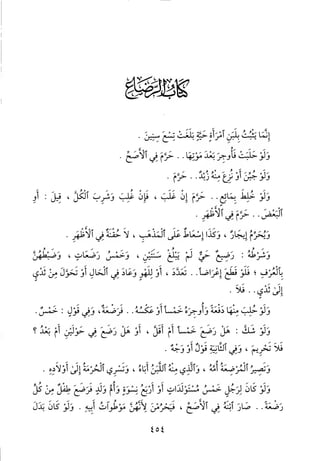 كتاب الرضاع
إنما يثبت بلبن امرأة حية بلغت تسع سنين .
ولو حلبت فأوجر بعد موتها . . حرم في الأصح .
ولو جبن أو نزع منه زبد . . حرم .
ولو خلط بمائع . . حرم إن غلب ، فإن غلب وشرب الكل ، قيل : أو
البعض . . حرم في الأظهر .
ويحرم إيجار ، وكذا إسعاط على المذهب ، لا حقنة في الأظهر .
وشرطه : رضيع حي لم يبلغ سنتين ، وخمس رضعات ، وضبطهن
بالعرف ؛ فلو قطع إعراضا . . تعدد ، أو للهو وعاد في الحال أو تحول من ثدي
إلى ثدي . . فلا .
ولو حلب منها دفعة وأوجره خمسا أو عكسه . . فرضعة ، وفي قول : خمس .
ولو شك : هل رضع خمسا أم أقل ، أو هل رضع في حولين أم بعد ؟
فلا تحريم ، وفي الثانية قول أو وجه .
وتصير المرضعة أمه ، والذي منه اللبن أباه ، وتسري الحرمة إلى أولاده .
ولو كان لرجل خمس مستولدات أو أربع نسوة وأم ولد فرضع طفل من كل
رضعة . . صار ابنه في الأصح ، فيحرمن لأنهن موطوآت أبيه . ولو كان بدل
٤٥٤